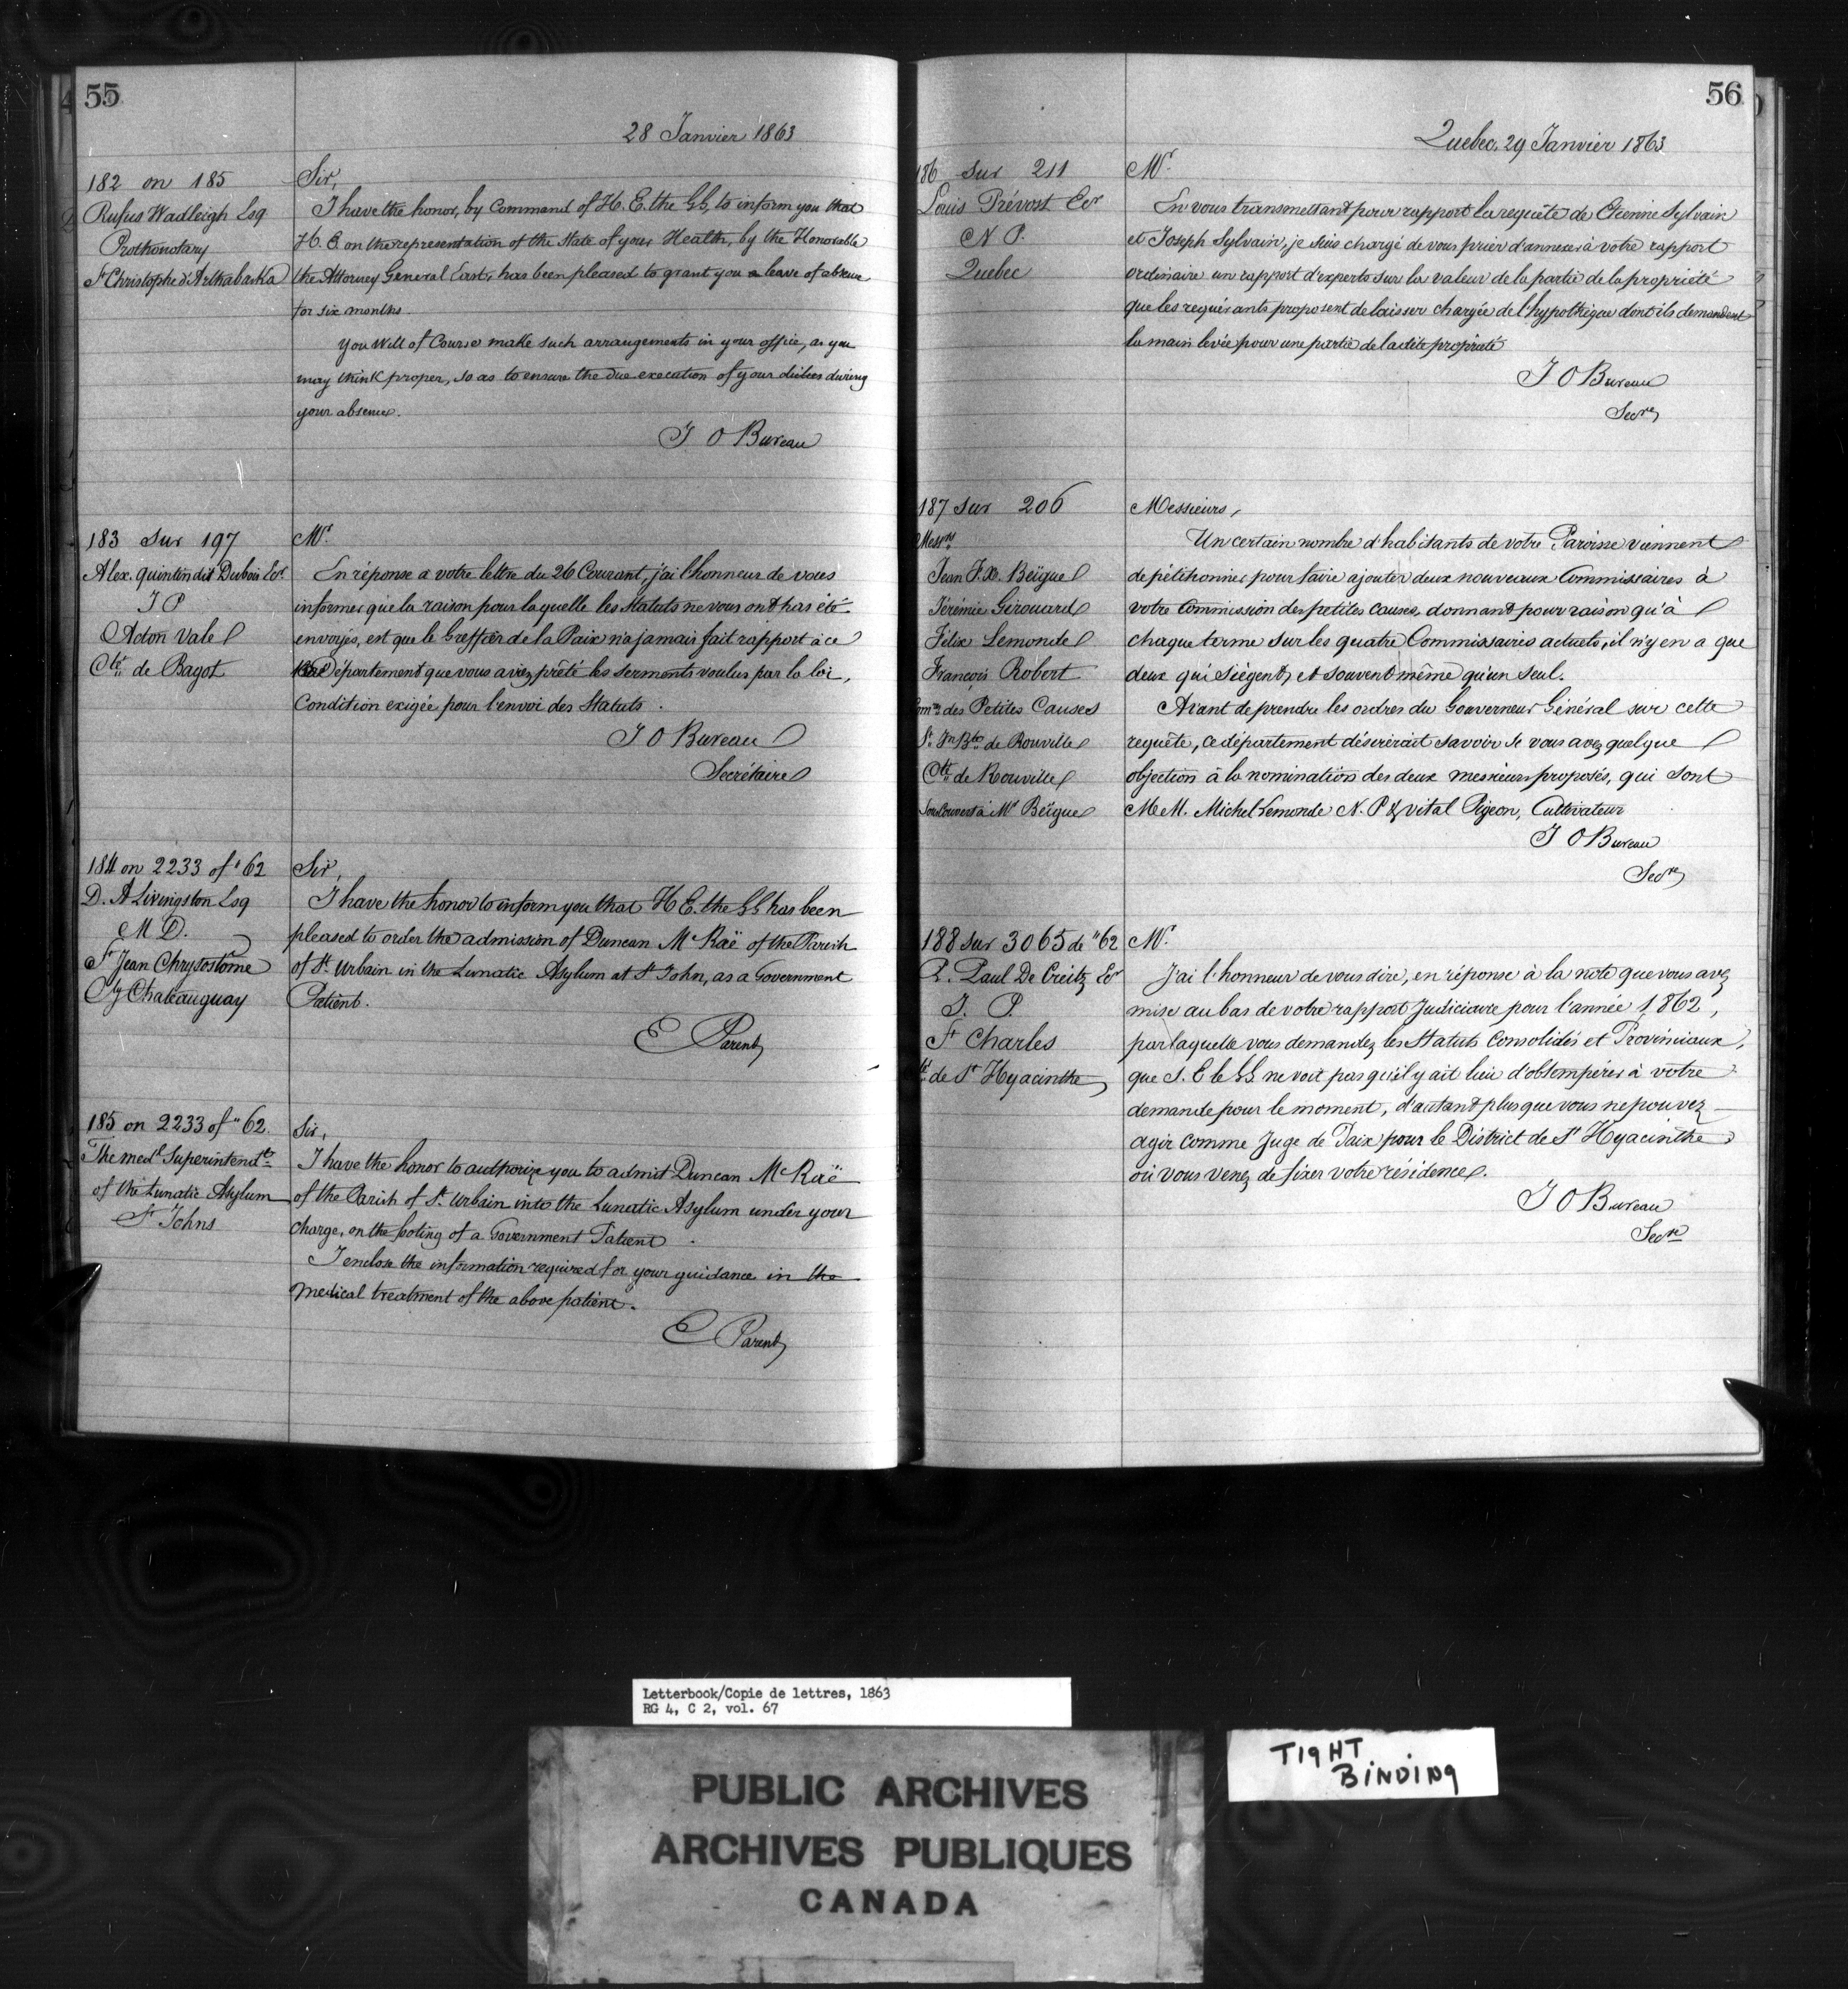 55
28 Janvier 1863
182 on 185
Rufus Wadleigh Esq
Prothonotary
St Christophe d'Arthabaska
Sir,
I have the honor, by Command of H. E. the GG, to inform you that
H. E. on the representation of the state of your Health, by the Honorable
the Attorney General East, has been pleased to grant you a leave of absence
for six months.
You Will of Course make such arrangements in your office, as you
may think proper, so as to ensure the due execution of your duties during
your absence.
J O Bureau
183 sur 197
Alex. Quintin dit Dubois Ecr
J P
Acton Vale
Cté de Bagot
Mr.
En réponse a votre lettre du 26 Courant, j'ai l'honneur de vous
informer que la raison pour laquelle les Statuts ne vous ont pas été
envoyés, est que le Greffier de la Paix n'a jamais fait rapport à ce
Département que vous avez prêté les serments voulus par la loi,
Condition exigée pour l'envoi des Statuts.
J O Bureau
Secrétaire
184 on 2233 of "62
D. A Livingston Esq
M D.
St Jean Chrysostôme
Cy Chateauguay
Sir,
I have the honor to inform you that H E. the GG has been
pleased to order the admission of Duncan McRaë of the Parish
of St. Urbain in the Lunatic Asylum at St John, as a Government
Patient.
E Parent
185 on 2233 of "62.
The medl Superintendt
of the Lunatic Asylum
St Johns
Sir,
I have the honor to authorize you to admit Duncan McRaë
of the Parish of St. Urbain into the Lunatic Asylum under your
charge, on the footing of a Government Patient.
I enclose the information required for your guidance in the
Medical treatment of the above patient.
E Parent
56
Quebec, 29 Janvier 1863
186 sur 211
Louis Prévost Ecr
N P.
Quebec
Mr.
En vous transmettant pour rapport la requête de Etienne Sylvain
et Joseph Sylvain, je suis chargé de vous prier d'annexer à votre rapport
ordinaire un rapport d'experts sur la valeur de la partie de la propriété
que les requérants proposent de laisser chargée de l'hypothèque dont ils demandent
la main levée pour une partie de ladite propriété
J O Bureau
Secre
187 sur 206
Messrs
Jean F.X. Beïque
Jérémie Girouard
Félix Lemonde
François Robert
Comrs des Petites Causes
St. Jn Bte de Rouville
Cté de Rouville
Sous Couvert à Mr Beïque
Messieurs,
Un certain nombre d'habitants de votre Paroisse viennent
de pétitionner pour faire ajouter deux nouveaux Commissaires à
votre Commission des petites causes, donnant pour raison qu'à
chaque terme sur les quatre Commissaires actuels, il n'y en a que
deux qui siègent, et souvent même qu'un seul.
Avant de prendre les ordres du Gouverneur Général sur cette
requête, ce département désirerait savoir si vous avez quelque
objection à la nomination des deux messieurs proposés, qui sont
M.M. Michel Lemonde N. P & Vital Pigeon, Cultivateur
J O Bureau
Secre
188 sur 3065 de "62
P. Paul De Creitz Ecr
J. P.
St Charles
Cté de St Hyacinthe
Mr.
J'ai l'honneur de vous dire, en réponse à la note que vous avez
mise au bas de votre rapport Judiciaire pour l'année 1862,
par laquelle vous demandez les Statuts Consolidés et Provinciaux,
que S. E le GG ne voit pas qu'il y ait lieu d'obtempérer à votre
demande pour le moment, d'autant plus que vous ne pouvez
agir comme Juge de Paix pour le District de St Hyacinthe
où vous venez de fixer votre résidence.
J O Bureau
Secre
Letterbook/Copie de lettres, 1863
RG 4, C 2, vol. 67
TIGHT
BINDING
PUBLIC ARCHIVES
ARCHIVES PUBLIQUES
CANADA